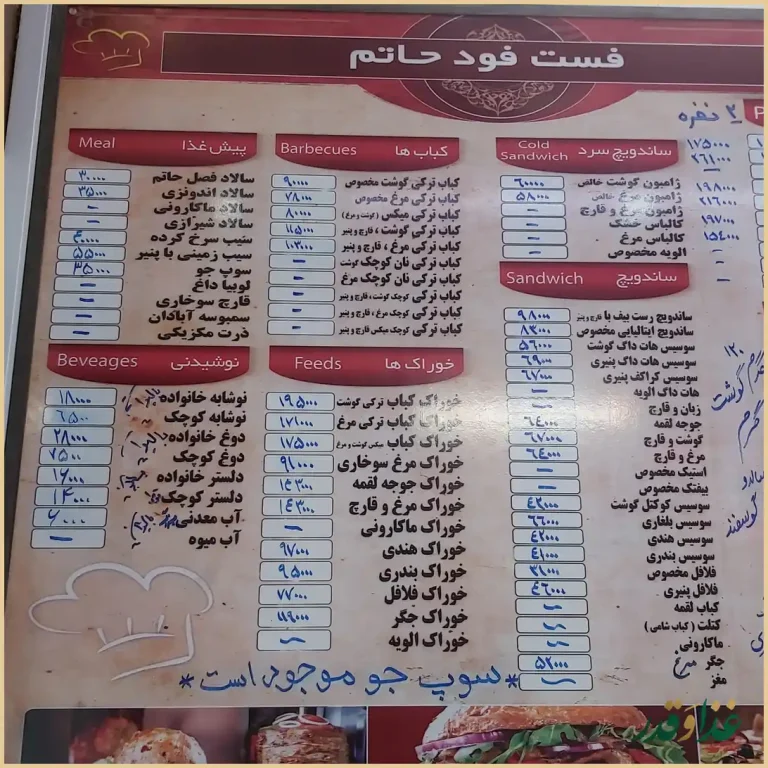 فست فود حاتم
۲ نفره
ساندویچ سرد Cold Sandwich
ژامبون گوشت خالص ۶۰۰۰۰
ژامبون مرغ خالص ۵۸۰۰۰
ژامبون مرغ و قارچ –
کالباس خشک –
کالباس مرغ –
الویه مخصوص –
۱۷۵۰۰۰
۲۶۱۰۰۰
۱۹۸۰۰۰
۲۱۶۰۰۰
۱۹۷۰۰۰
۱۵۴۰۰۰
–
–
ساندویچ Sandwich
ساندویچ رست بیف با قارچ و پنیر ۹۸۰۰۰
ساندویچ ایتالیایی مخصوص ۸۳۰۰۰
سوسیس هات داگ گوشت ۵۶۰۰۰
سوسیس هات داگ پنیری ۶۹۰۰۰
سوسیس کراکف پنیری ۶۷۰۰۰
هات داگ الویه –
زبان و قارچ –
جوجه لقمه ۶۴۰۰۰
گوشت و قارچ ۶۷۰۰۰
مرغ و قارچ ۶۴۰۰۰
استیک مخصوص –
بیفتک مخصوص –
سوسیس کوکتل گوشت ۴۲۰۰۰
سوسیس بلغاری ۶۶۰۰۰
سوسیس هندی ۴۲۰۰۰
سوسیس بندری ۴۱۰۰۰
فلافل مخصوص ۳۱۰۰۰
فلافل پنیری ۴۶۰۰۰
کباب لقمه –
کتلت (کباب شامی) –
ماکارونی –
جگر مرغ ۵۲۰۰۰
مغز –
کباب ها Barbecues
کباب ترکی گوشت مخصوص ۹۰۰۰۰
کباب ترکی مرغ مخصوص ۷۸۰۰۰
کباب ترکی میکس (گوشت و مرغ) ۸۰۰۰۰
کباب ترکی گوشت ، قارچ و پنیر ۱۱۵۰۰۰
کباب ترکی مرغ ، قارچ و پنیر ۱۰۳۰۰۰
کباب ترکی نان کوچک گوشت –
کباب ترکی نان کوچک مرغ –
کباب ترکی کوچک گوشت ، قارچ و پنیر –
کباب ترکی کوچک مرغ ، قارچ و پنیر –
کباب ترکی کوچک میکس قارچ و پنیر –
خوراک ها Feeds
خوراک کباب ترکی گوشت ۱۹۵۰۰۰
خوراک کباب ترکی مرغ ۱۷۱۰۰۰
خوراک کباب میکس گوشت و مرغ ۱۷۵۰۰۰
خوراک مرغ سوخاری ۹۱۰۰۰
خوراک جوجه لقمه ۱۴۳۰۰۰
خوراک مرغ و قارچ ۱۴۳۰۰۰
خوراک ماکارونی –
خوراک هندی ۹۷۰۰۰
خوراک بندری ۹۵۰۰۰
خوراک فلافل ۷۷۰۰۰
خوراک جگر ۱۱۹۰۰۰
خوراک الویه –
پیش غذا Meal
سالاد فصل حاتم ۳۰۰۰۰
سالاد اندونزی ۳۵۰۰۰
سالاد ماکارونی –
سالاد شیرازی –
سیب سرخ کرده ۴۰۰۰۰
سیب زمینی با پنیر ۵۵۰۰۰
سوپ جو ۳۵۰۰۰
لوبیا داغ –
قارچ سوخاری –
سمبوسه آبادان –
ذرت مکزیکی –
نوشیدنی Beveages
نوشابه خانواده ۱۸۰۰۰
نوشابه کوچک ۶۵۰۰
دوغ خانواده ۲۸۰۰۰
دوغ کوچک ۷۵۰۰
دلستر خانواده ۱۶۰۰۰
دلستر کوچک ۱۴۰۰۰
آب معدنی ۶۰۰۰
آب میوه –
۱۲۰ گرم گوشت
گوسفند
*سوپ جو موجود است*
غذا و قدر